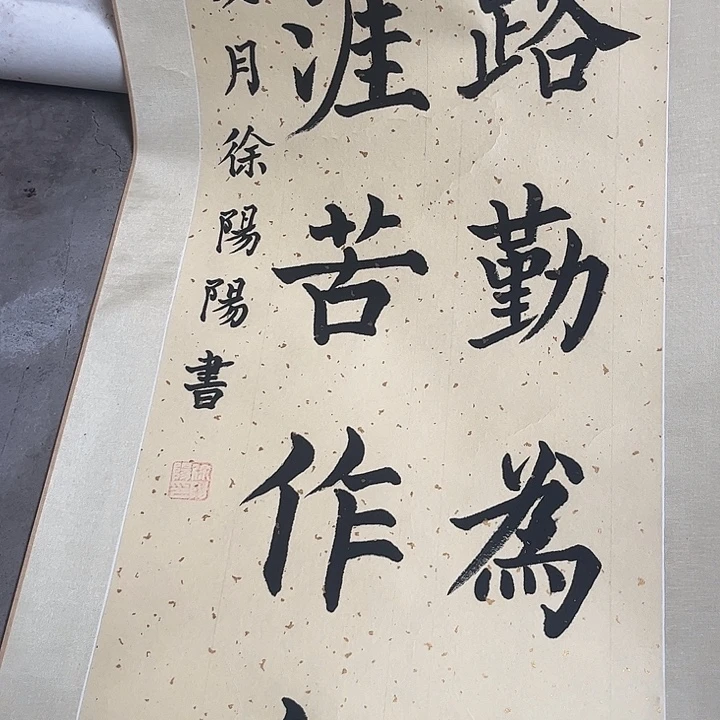 路勤為
涯苦作
月徐陽陽書